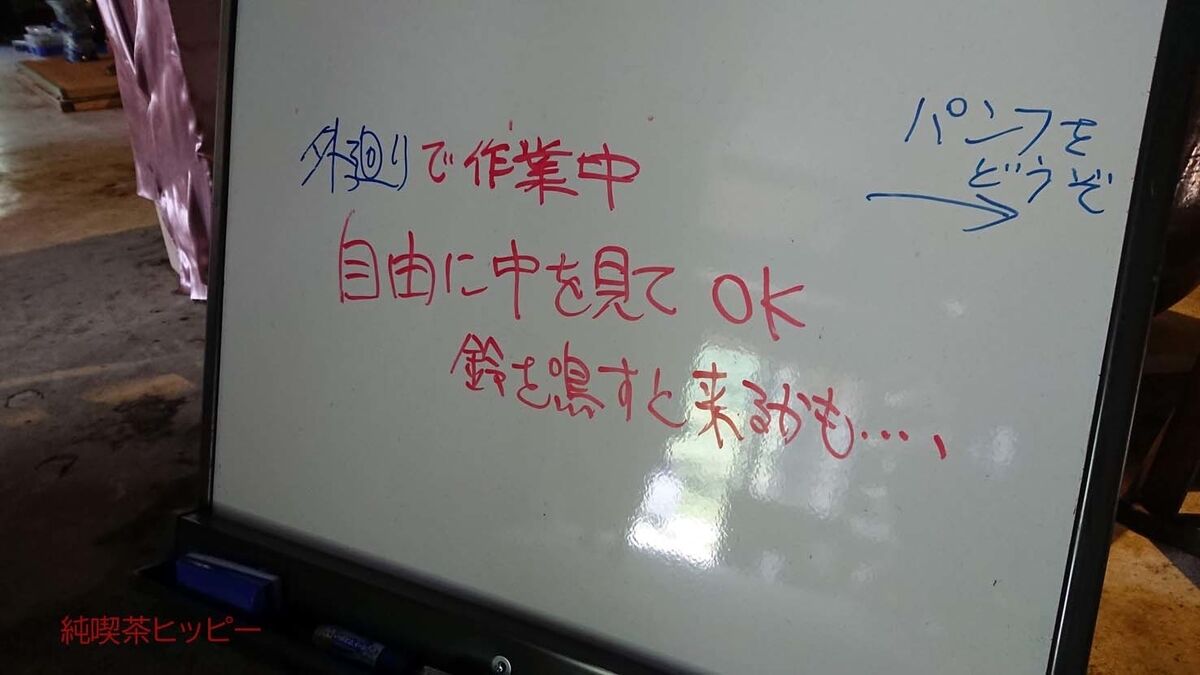 外廻りで作業中
自由に中を見てOK
鈴を鳴すと来るかも….、
パンフを
どうぞ
→
純喫茶ヒッピー